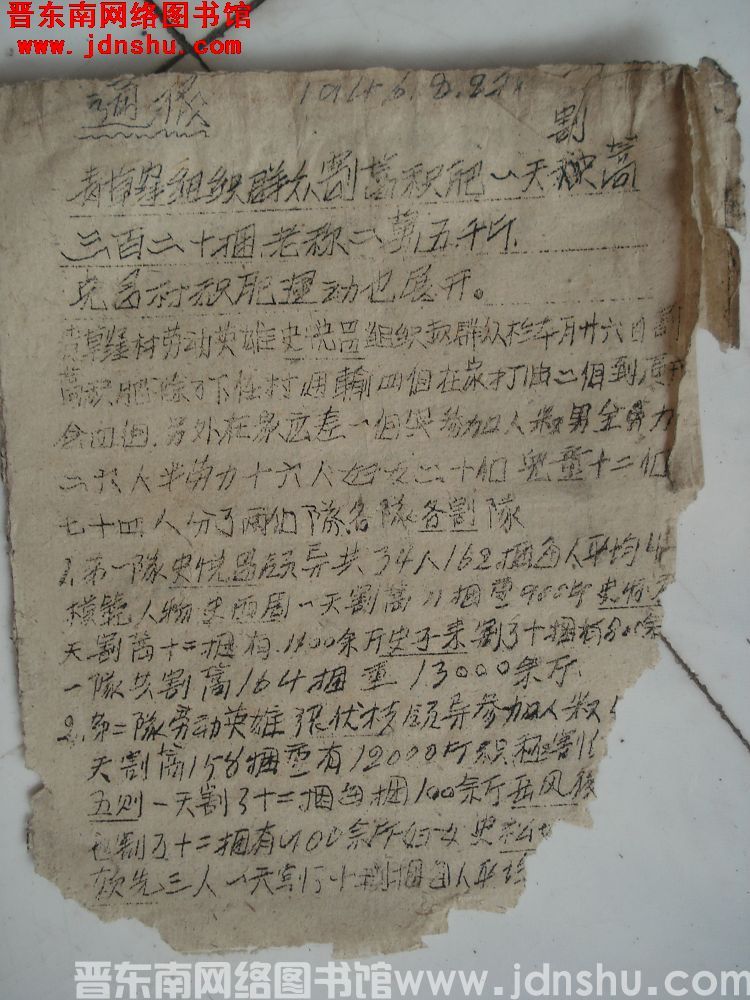 晋东南网络图书馆
www.jdnshu.com
通报 1946.8.22
割
青草堡组织群众割蒿积肥一天积蒿
三百二十捆老称二萬五千斤
史家村积肥运动也展开。
青草堡村劳动英雄史悦昌组织起群众于本月廿六日割
蒿积肥除了下住村 四個在家打油二個到
四個 另外在家 一個 参加人数男全劳力
二六人半劳力十六人妇女二十们 儿童十二们
七十四人分了两们隊各隊各割隊
1.第一隊史悦昌领导共34人162捆每人平均4
模範人物史西周一天割蒿11捆重900斤史
天割蒿十二捆有1100余斤史子来割了十捆有800余
一隊共割蒿164捆重13000余斤
2.第二隊劳动英雄張伏枝领导参加人数
天割蒿158捆重有12000斤积极割
五则一天割了十二捆每捆100余斤岳风
也割了十二捆有1100余斤妇女史松
领先三人一天割了十 捆每人平均
晋东南网络图书馆www.jdnshu.com